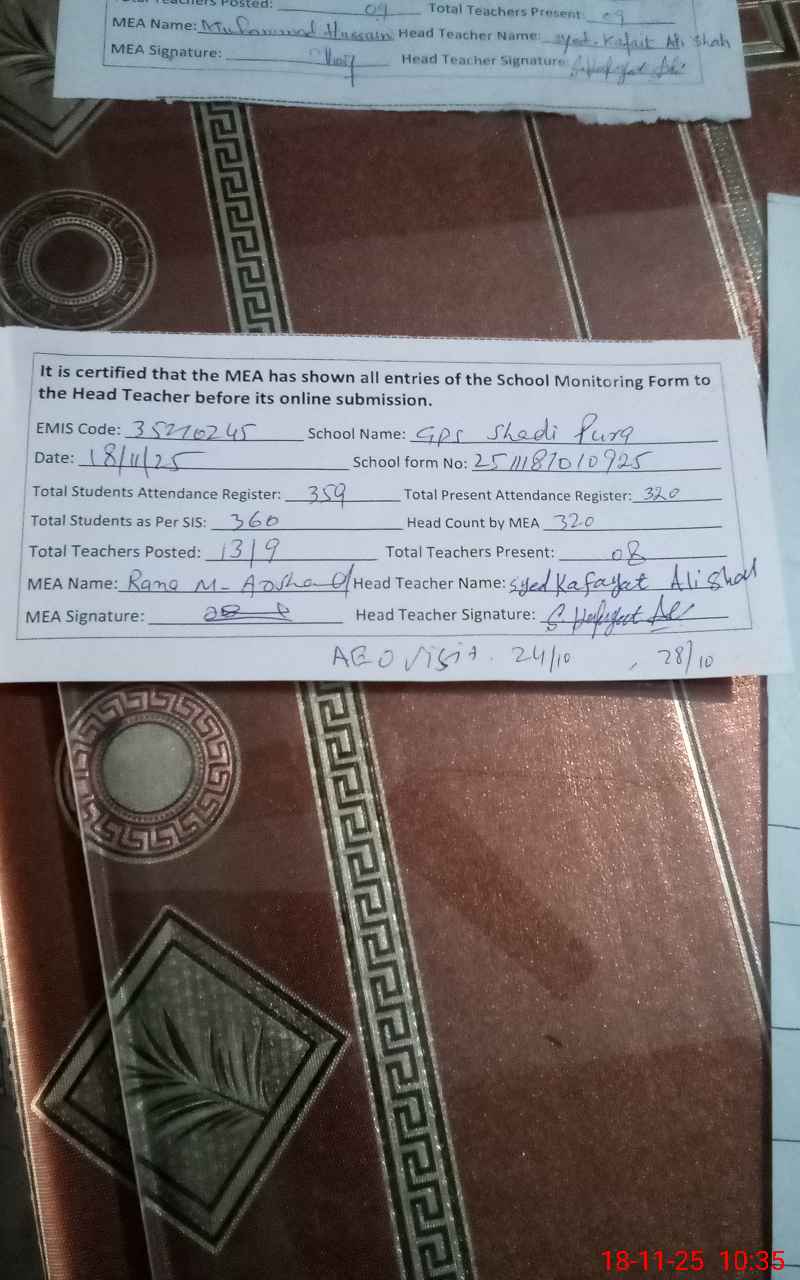 Teachers Posted: 09 Total Teachers Present: 09
MEA Name: Muhammad Hussain Head Teacher Name: Syed. Kafait Ali Shah
MEA Signature: Head Teacher Signature:
It is certified that the MEA has shown all entries of the School Monitoring Form to
the Head Teacher before its online submission.
EMIS Code: 35210245 School Name: GPS Shadi Pura
Date: 18/11/25 School form No: 251118101 0925
Total Students Attendance Register: 359 Total Present Attendance Register: 320
Total Students as Per SIS: 360 Head Count by MEA 320
Total Teachers Posted: 13/9 Total Teachers Present: 08
MEA Name: Rana M- Head Teacher Name: Syed Kafayat Ali Shah
MEA Signature: Head Teacher Signature:
AEO Visit. 24/10, 28/10
18-11-25 10:35